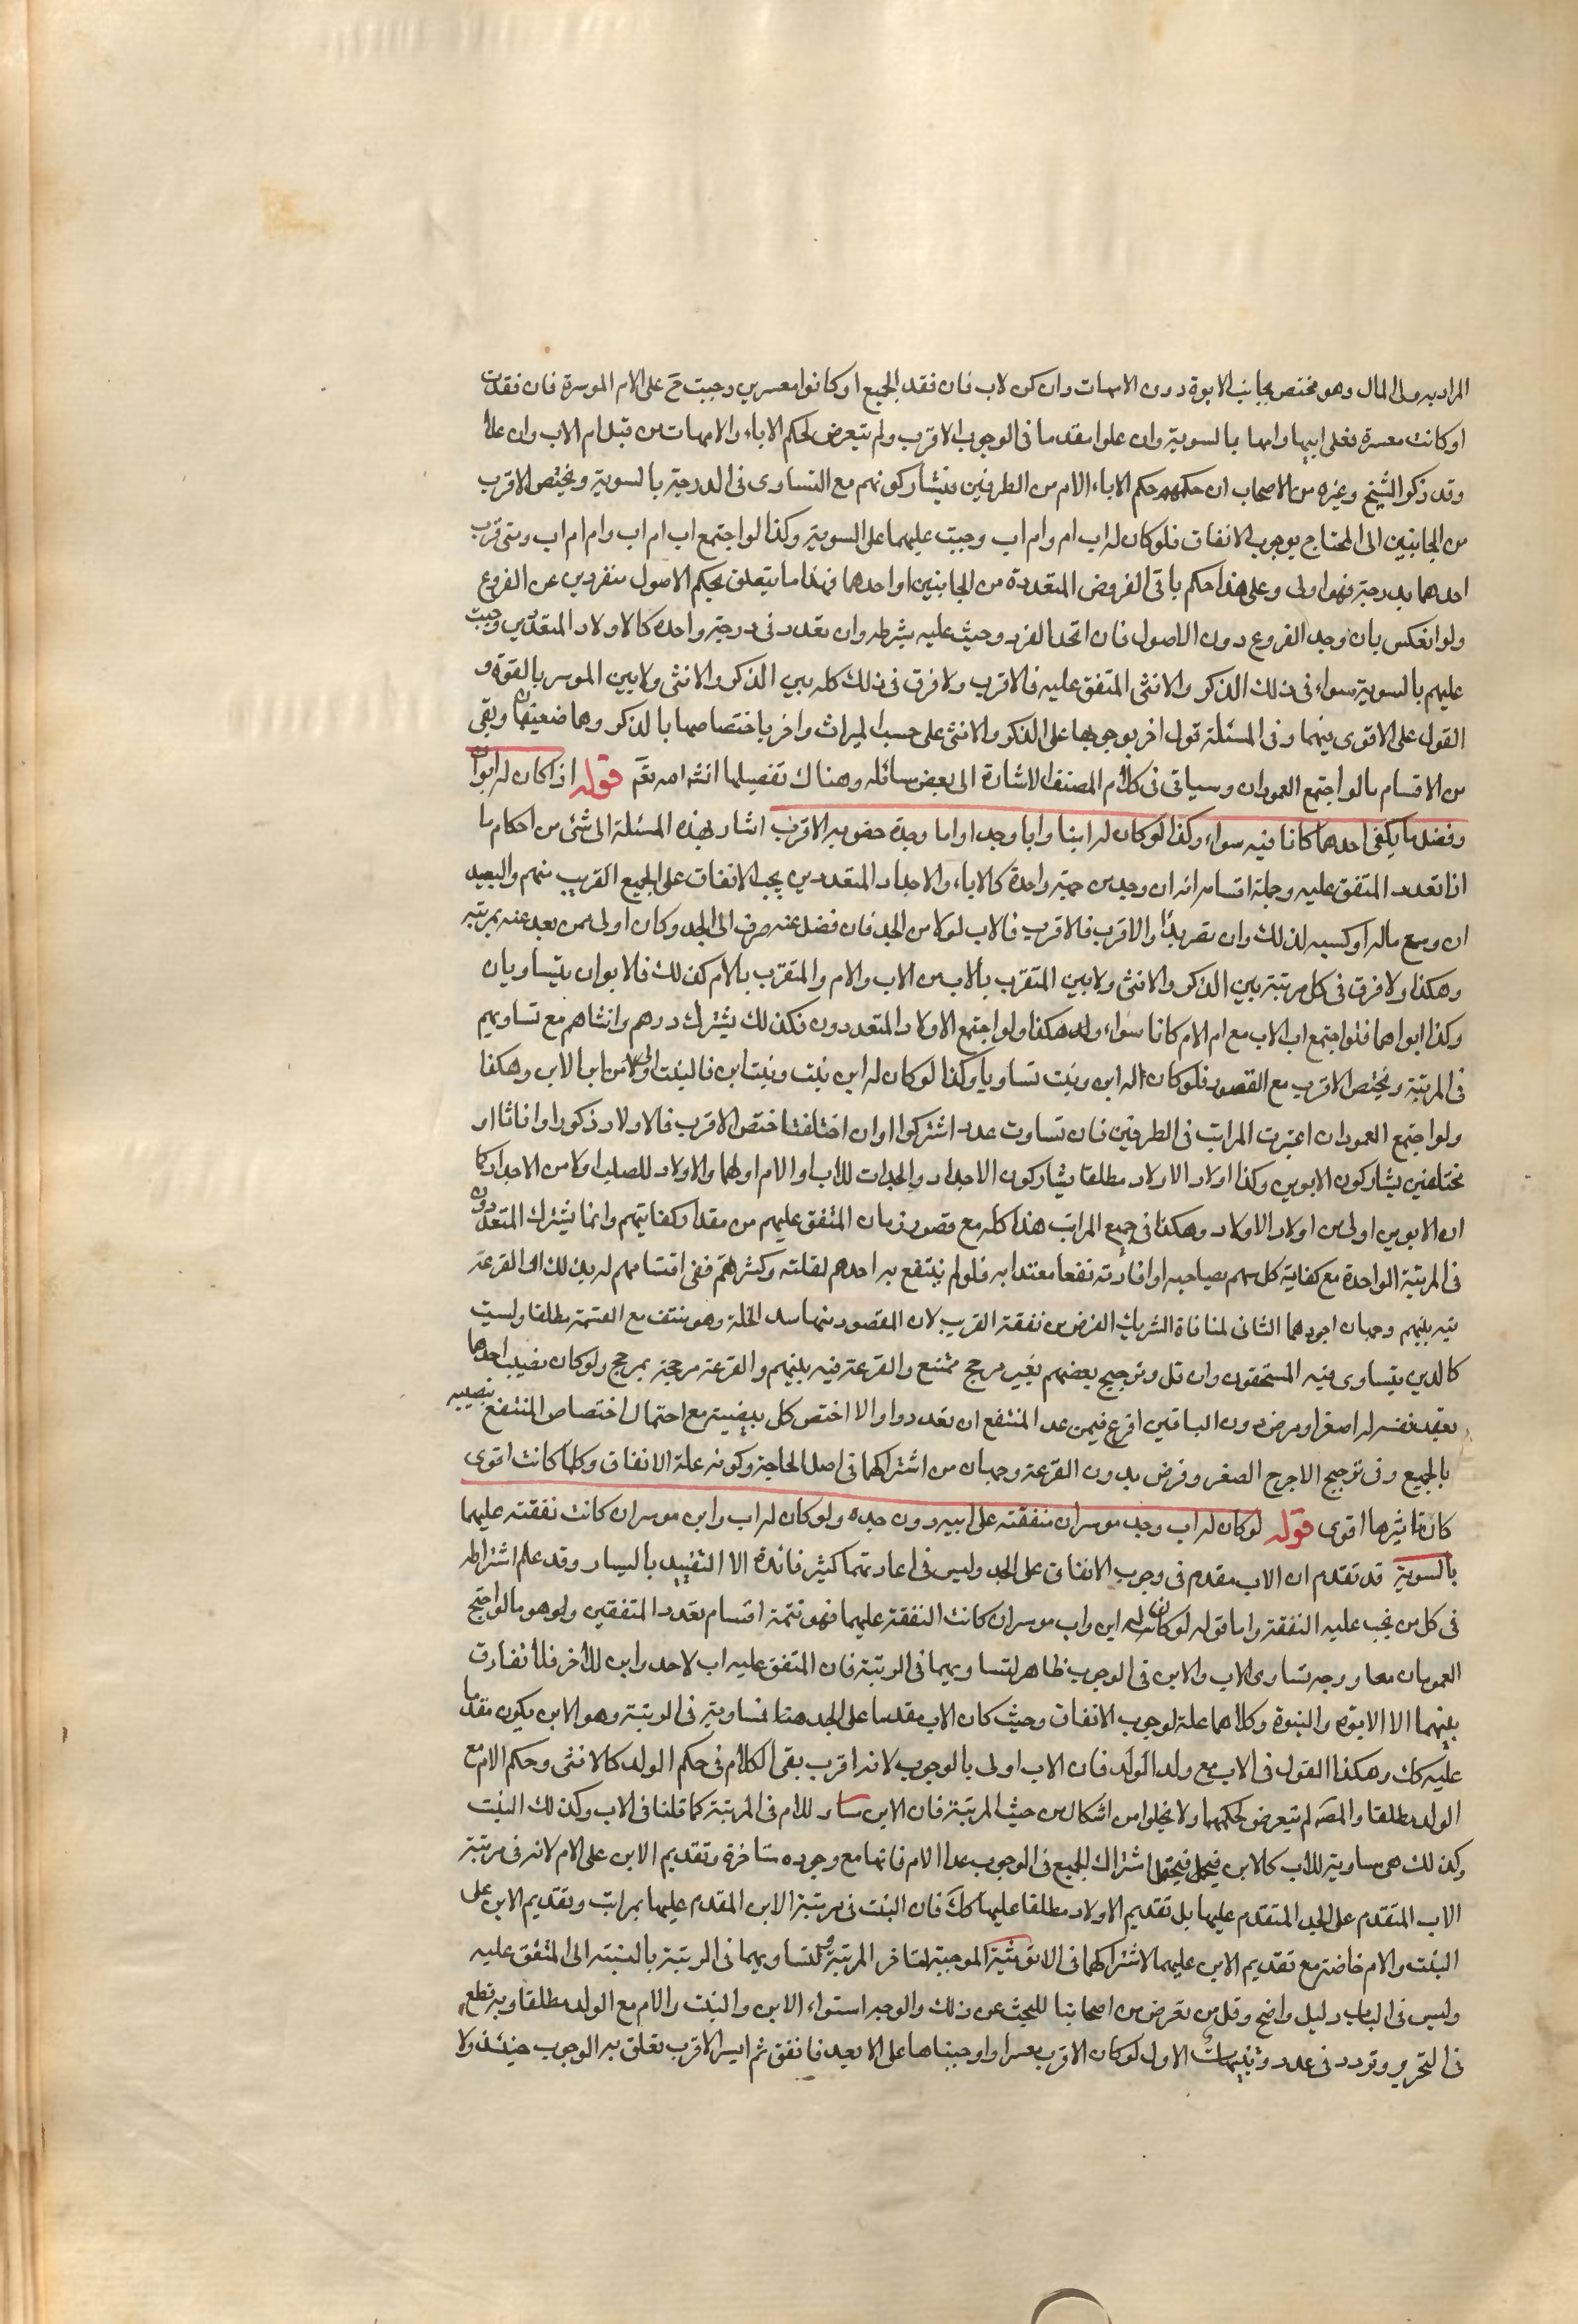 المراد به ولى المال وهو مختص بجانب الابوة دون الامهات وان كن لاب فان فقد الجميع او كانوا معسرين وجبت ح على الام الموسرة فان فقدت
او كانت معسرة فعلى ابيها وامها بالسوية وان علوا مقدما فى الوجوب الاقرب ولم يتعرض لحكم الاباء والامهات من قبل ام الاب وان علا
وقد ذكر الشيخ وغيره من الاصحاب ان حكمهم حكم الاباء الام من الطرفين فيتشاركونهم مع التساوى فى الدرجة بالسوية ويختص الاقرب
من الجانبين الى المحتاج بوجوب الانفاق فلو كان له اب ام وام اب وجبت عليهما على السوية وكذا لو اجتمع اب ام اب وام ام اب ومتى قرب
احدهما بدرجة فهو اولى وعلى هذا حكم باقى الفروض المتعددة من الجانبين او احدهما فهذا ما يتعلق بحكم الاصول منفردين عن الفروع
ولو انعكس بان وجد الفروع دون الاصول فان اتحد الفرد وجبت عليه بشرطه وان تعدد فى درجة واحدة كالاولاد المتعددين وجبت
عليهم بالسوية سواء فى ذلك الذكر والانثى المتفق عليه فالاقرب ولا فرق فى ذلك كله بين الذكر والانثى ولا بين الموسر بالقوة و
القول على الاقوى فيهما وفى المسئلة قول اخر بوجوبها على الذكر والانثى على حسب الميراث واخر باختصاصها بالذكر وهما ضعيفان وبقى
من الاقسام ما لو اجتمع العمودان وسياتى فى كلام المصنف الاشارة الى بعض مسائله وهناك تفصيلها انشا الله تع قوله اذا كان له ابوان
وفضل ما يكفى احدهما كانا فيه سواء وكذا لو كان له ابنا وابا وجدا واما وجدة خصو به الاقرب اشار بهذه المسئلة الى شئ من احكام ما
اذا تعدد المتفق عليه وجملة اقسامه انه ان وجد من جهة واحدة كالاباء والاجداد المتعددين يجب الانفاق على الجميع القريب منهم والبعيد
ان وسع ماله او كسبه لذلك وان تصر بدأ والاقرب فالاقرب فالاب لولا من الجد فان فضل عنه صرف الى الجد وكان اولى ممن بعد عنه بمرتبة
وهكذا ولا فرق فى كل مرتبة بين الذكر والانثى ولا بين المتقرب بالاب من الاب والام والمتقرب بالام كذلك فالابوان يتساويان
وكذا ابواهما فلو اجتمع اب الاب مع ام الام كانا سواء وهكذا ولو اجتمع الاولاد المتعددون فكذلك يشترك ذكرهم وانثاهم مع تساويهم
فى المرتبة ويختص الاقرب مع القصور فلو كان له ابن وبنت تساويا وكذا لو كان له ابن بنت وبنت ابن فالبنت اولى من ابن الابن وهكذا
ولو اجتمع العمودان اعتبرت المراتب فى الطرفين فان تساوت عدد اشتركوا وان اختلفت اختص الاقرب فالاولاد ذكورا واناثا او
مختلفين يشاركون الابوين وكذا اولاد الاولاد مطلقا يشاركون الاجداد والجدات للاب او الام او لهما والاولاد للصلب اولا من الاجداد كما
ان الابوين اولى من اولاد الاولاد وهكذا فى جميع المراتب هذا كله مع قصور زمان المتفق عليهم من مقدار كفايتهم وانما يشترك المتعددون
فى المرتبة الواحدة مع كفاية كل سهم بصاحبه او افادته نفعا معتدا به فلو لم ينتفع به احدهم لقلته وكثرهم ففى اقتسامهم له بذلك او القرعة
فيه بينهم وجهان اجودهما الثانى لمنافاة التشريك الغرض من نفقة القريب لان المقصود منها سد الخلة وهو منتف مع القسمة مطلقا وليست
كالدين يتساوى فيه المستحقون وان قل وترجيح بعضهم بغير مرجح ممتنع والقرعة فيه بينهم والقرعة مرجحة بمرجح ولو كان نصيب احدهما
يعتد نفسه له اصغر او مرض دون الباقين اقرع فيمن عدا المنتفع ان تعددوا والا اختص كل بنصيبه مع احتمال اختصاص المنتفع بنصيبه
بالجميع وفى ترجيح الاحوج الصغر وفرض بدون القرعة وجهان من اشتراكهما فى اصل الحاجة وكونه علة الانفاق وكلما كانت اقوى
كان تاثيرها اقوى قوله لو كان له اب وجد موسران فنفقته على ابيه دون جده ولو كان له اب وابن موسران كانت نفقته عليهما
بالسوية قد تقدم ان الاب مقدم فى وجوب الانفاق على الجد وليس فى اعادتهما كثير فائدة الا التقييد باليسار وقد علم اشتراطه
فى كل من يجب عليه النفقة واما قوله لو كان له ابن واب موسران كانت النفقة عليهما فهو تتمة اقسام تعدد المتفقين ولو هو ما لو اجتمع
العمودان معا ووجه تساوى الاب والابن فى الوجوب ظاهر لتساويهما فى الرتبة فان المتفق عليه اب لاحد وابن للاخر فلا تفارق
بينهما الا الابوة والبنوة وكلاهما علة لوجوب الانفاق وحيث كان الاب مقدما على الجد هنا فمساويه فى الرتبة وهو الابن يكون مقدما
عليه كك وهكذا القول فى الاب مع ولد الولد فان الاب اولى بالوجوب لانه اقرب بقى الكلام فى حكم الولد كالانثى وحكم الام مع
الولد مطلقا والمصه لم يتعرض لحكمهما ولا يخلوا من اشكال من حيث المرتبة فان الابن ساو للام فى المرتبة كما قلنا فى الاب وكذلك البنت
وكذلك هى مساوية للاب كالابن فيحتمل اشتراك الجميع فى الوجوب عدا الام فانها مع وجوده متاخرة وتقديم الابن على الام لانه فى مرتبة
الاب المتقدم على الجد المتقدم عليها بل تقديم الاولاد مطلقا عليها كك فان البنت فى مرتبة الابن المقدم عليها بمراتب وتقديم الابن على
البنت والام خاصة مع تقديم الابن عليهما لاشتراكهما فى الانوثية الموجبة لتاخر المرتبة ولتساويهما فى الرتبة بالنسبة الى المتفق عليه
وليس فى الباب دليل واضح وقل من تعرض من اصحابنا للبحث عن ذلك والوجه استواء الابن والبنت والام مع الولد مطلقا وبه قطع
فى التحرير وتردد فى عدد وتنبيهات الاول لو كان الاقرب معسرا واوجبناها على الابعد فانفق ثم ايسر الاقرب تعلق به الوجوب حينئذ ولا